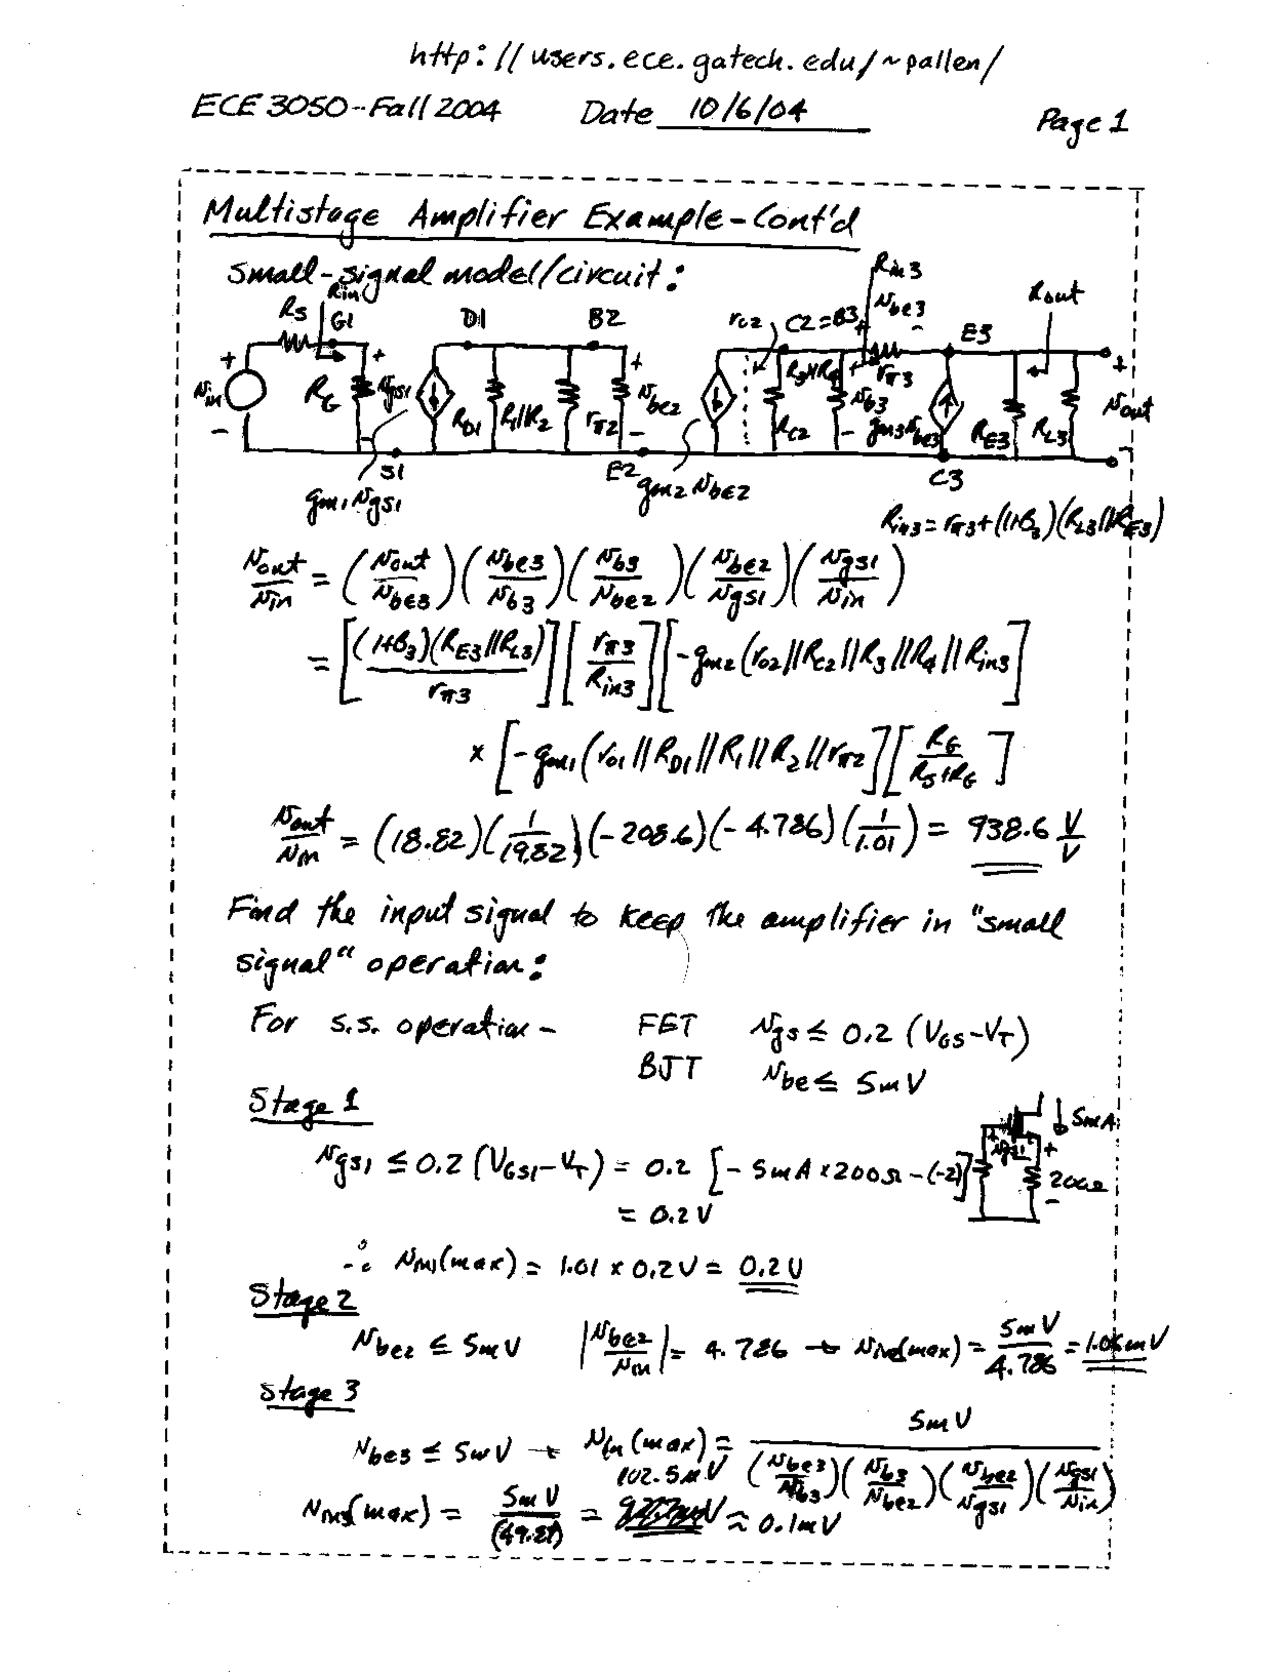 http://users.ece.gatech.edu/~pallen/
ECE 3050--Fall 2004 Date 10/6/04 Page 1
Multistage Amplifier Example-Cont'd
Small-signal model/circuit:
Rin3
RS Rin G1 D1 B2 ro2 C2=B3 vbe3 E3 Rout
+ + + + - +
vin RG vgs1 RD1 R1||R2 rπ2 vbe2 RC2 R3||R4 vb3 rπ3 gm3vbe3 RE3 RL3 vout
- - - - -
S1 E2 C3
gm1vgs1 gm2vbe2
Rin3 = rπ3+(1+β3)(RL3||RE3)
vout/vin = (vout/vbe3)(vbe3/vb3)(vb3/vbe2)(vbe2/vgs1)(vgs1/vin)
= [(1+β3)(RE3||RL3)/rπ3][rπ3/Rin3][-gm2(ro2||RC2||R3||R4||Rin3]
x [-gm1(ro1||RD1||R1||R2||rπ2][RG/RS+RG]
vout/vin = (18.82)(1/19.82)(-208.6)(-4.786)(1/1.01) = 938.6 V/V
Find the input signal to keep the amplifier in "small
signal" operation:
For s.s. operation- FET vgs ≤ 0.2 (VGS-VT)
BJT vbe ≤ 5mV
Stage 1
5mA
vgs1 ≤ 0.2 (VGS1-VT) = 0.2 [-5mA x 200Ω -(-2)]
+ vgs1 - + 200Ω -
= 0.2V
∴ vin1(max) = 1.01 x 0.2V = 0.2V
Stage 2
vbe2 ≤ 5mV |vbe2/vin| = 4.786 → vin2(max) = 5mV/4.786 = 1.06mV
Stage 3
vbe3 ≤ 5mV → vin(max) = 5mV/(vbe3/vb3)(vb3/vbe2)(vbe2/vgs1)(vgs1/vin)
102.5μV
vin3(max) = 5mV/(49.87) = ≈ 0.1mV